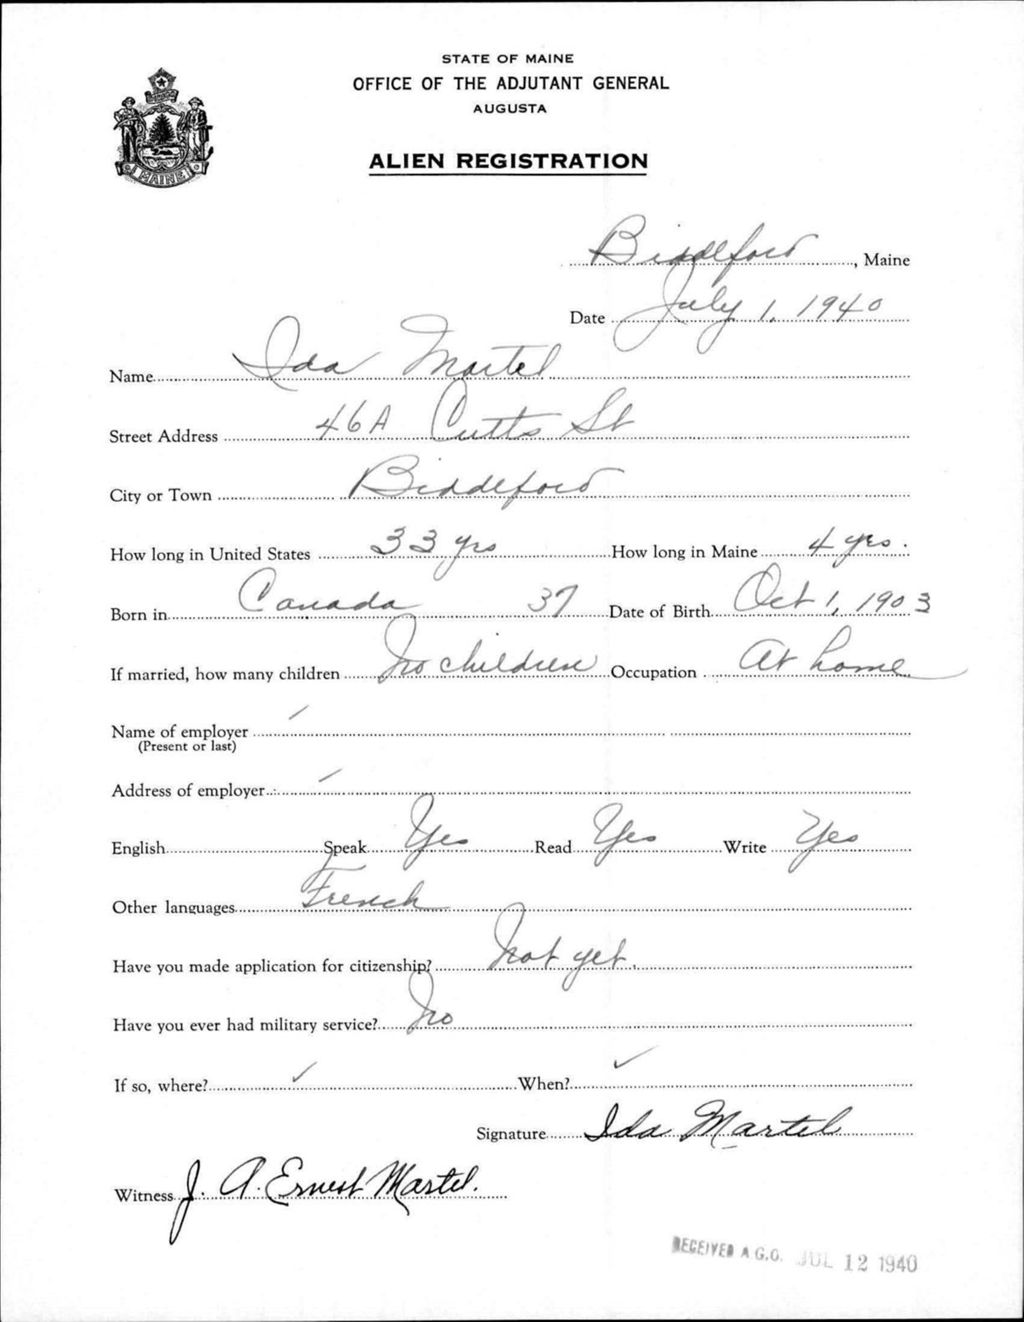 STATE OF MAINE
OFFICE OF THE ADJUTANT GENERAL
AUGUSTA
ALIEN REGISTRATION
MAINE
Biddeford, Maine
Date July 1, 1940
Name Ida Martel
Street Address 46A Cutts St
City or Town Biddeford
How long in United States 33 yrs How long in Maine 4 yrs.
Born in Canada 37 Date of Birth Oct 1, 1903
If married, how many children No children Occupation At home
Name of employer
(Present or last)
Address of employer
English Speak Yes Read Yes Write Yes
Other languages French
Have you made application for citizenship? Not yet.
Have you ever had military service? No
If so, where? When?
Signature Ida Martel
Witness J. A. Ernest Martel.
RECEIVED A.G.O. JUL 12 1940